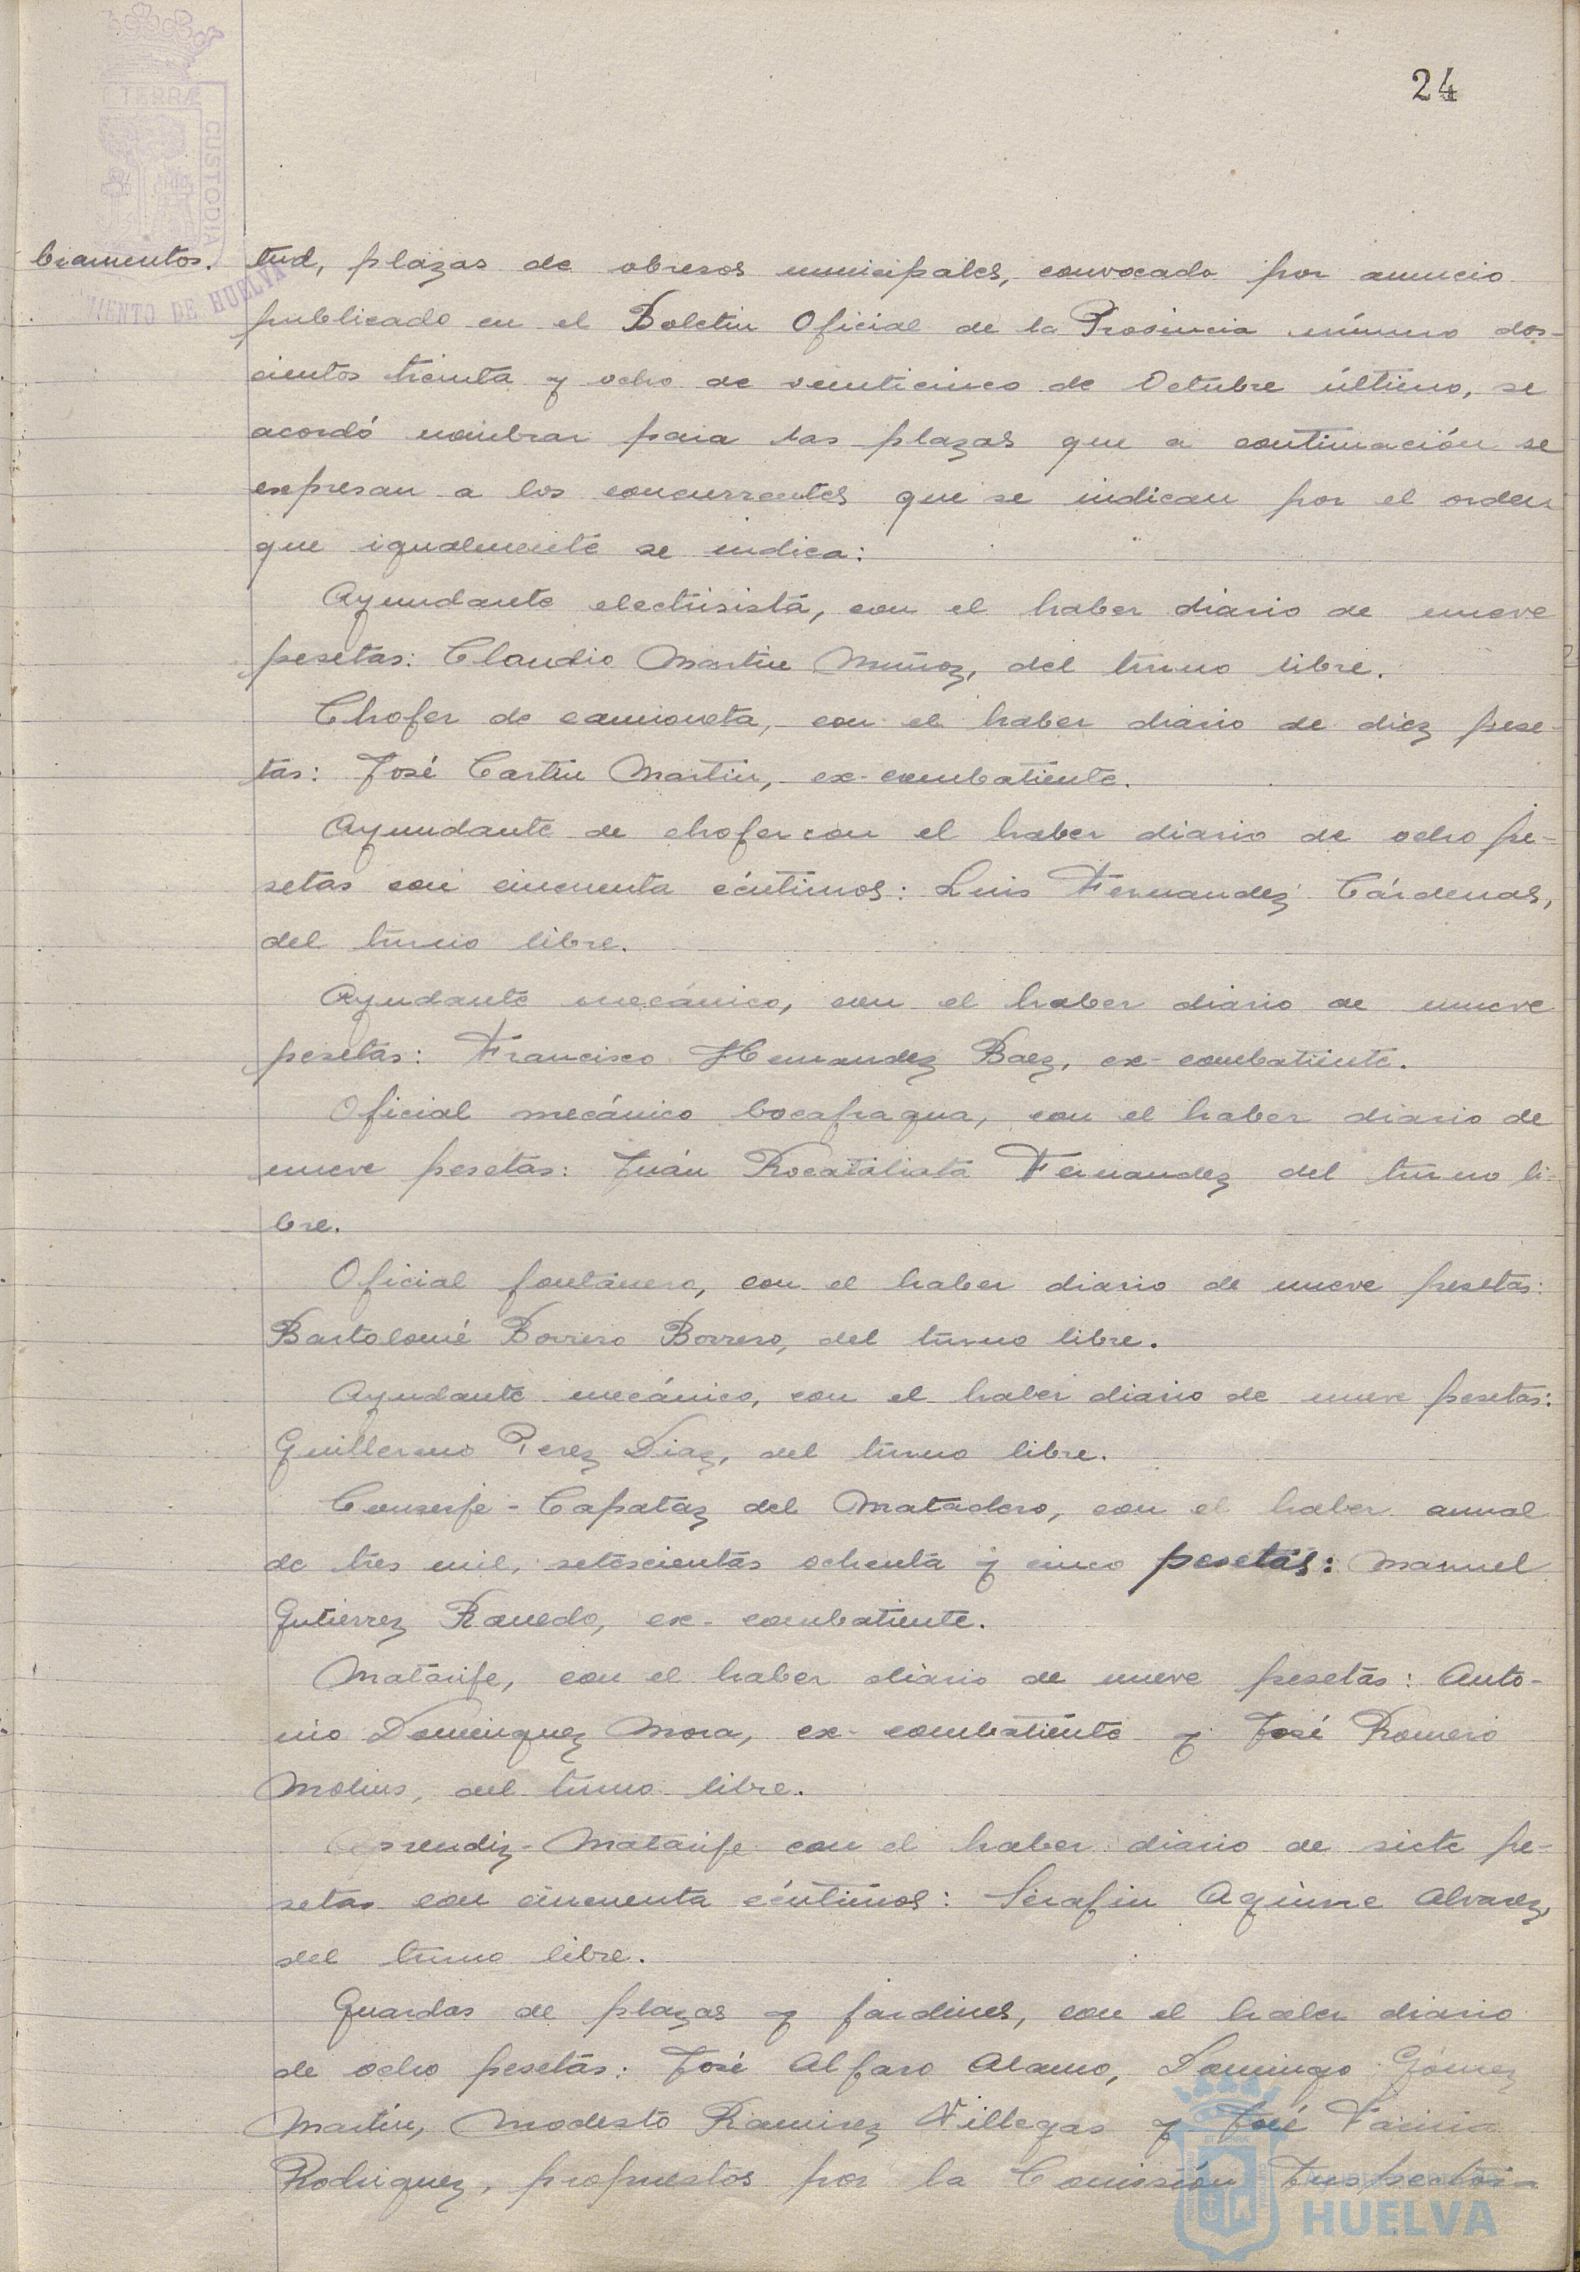 24
TERRÆ
CUSTODIA
MIENTO DE HUELVA
bramientos.
tud, plazas de obreros municipales, convocado por anuncio
publicado en el Boletin Oficial de la Provincia número dos-
cientos treinta y ocho de veinticinco de Octubre último, se
acordó nombrar para las plazas que a continuación se
expresan a los concurrentes que se indican por el orden
que igualmente se indica:
Ayundante electrisista, con el haber diario de nueve
pesetas: Claudio Martin Muñoz, del turno libre.
Chofer de camioneta, con el haber diario de diez pese-
tas: José Martin, ex-combatiente.
Ayundante de chofer con el haber diario de ocho pe-
setas con cincuenta céntimos: Luis Fernandez Cárdenas,
del turno libre.
Ayudante mecánico, con el haber diario de nueve
pesetas: Francisco Hernandez Baez, ex-combatiente.
Oficial mecánico bocafragua, con el haber diario de
nueve pesetas: Juán Fernandez del turno li-
bre.
Oficial fontanero, con el haber diario de nueve pesetas:
Bartolomé Borrero Borrero, del turno libre.
Ayudante mecánico, con el haber diario de nueve pesetas:
Guillermo Perez Diaz, del turno libre.
Conserje-Capataz del Matadero, con el haber anual
de tres mil, setescientas ochenta y cinco pesetas: Manuel
Gutierrez Ranedo, ex-combatiente.
Matarife, con el haber diario de nueve pesetas: Anto-
nio Dominguez Mora, ex-combatiente y José Romero
Molins, del turno libre.
Aprendiz-Matarife con el haber diario de siete pe-
setas con cincuenta céntimos: Serafin Aguirre Alvarez,
del turno libre.
Guardas de plazas y jardines, con el haber diario
de ocho pesetas: José Alfaro Alamo, Domingo Gómez
Martin, Modesto Ramirez Villegas y José
Rodriguez, propuestos por la Comisión Inspectora
HUELVA